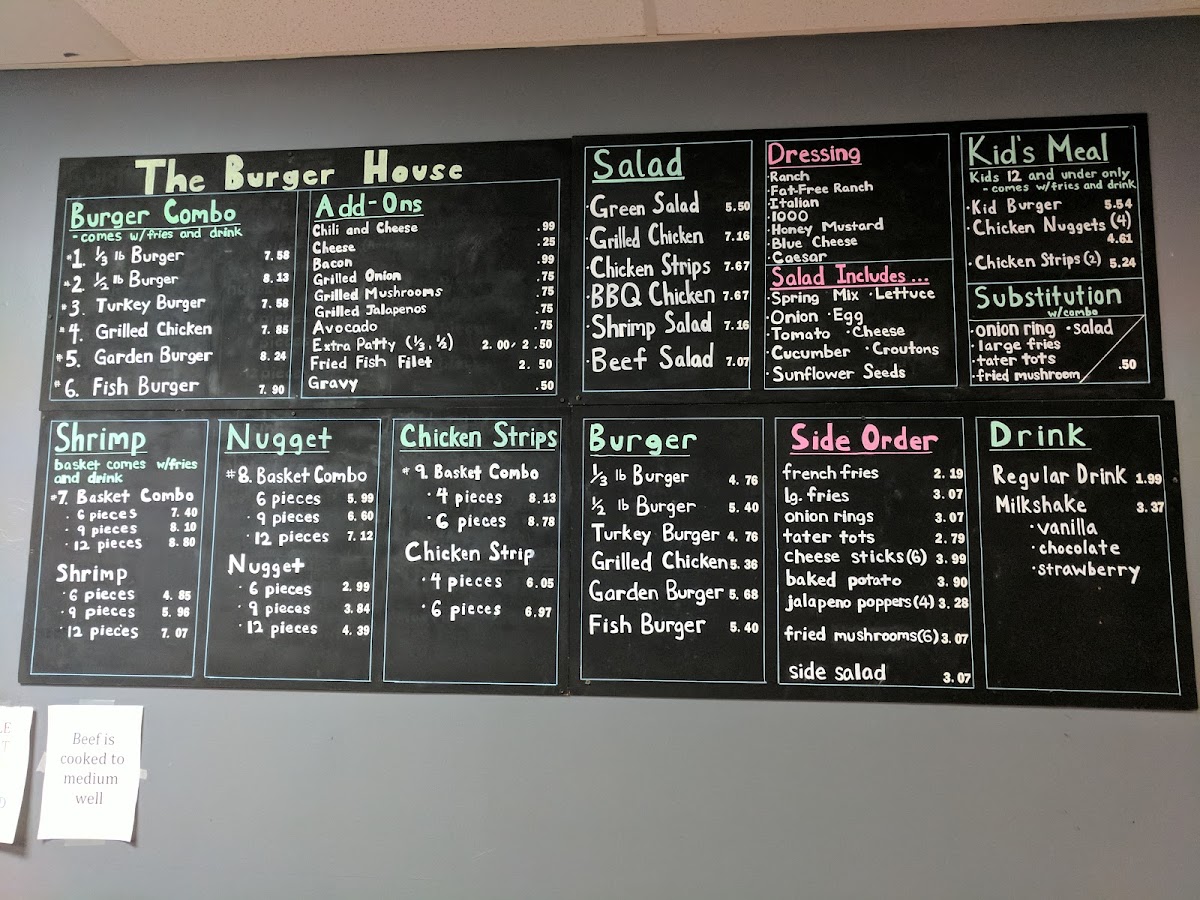 The Burger House
Burger Combo
- comes w/fries and drink
#1. ⅓ lb Burger 7.58
#2. ½ lb Burger 8.13
#3. Turkey Burger 7.58
#4. Grilled Chicken 7.85
#5. Garden Burger 8.24
#6. Fish Burger 7.90
Add-Ons
Chili and Cheese .99
Cheese .25
Bacon .99
Grilled Onion .75
Grilled Mushrooms .75
Grilled Jalapenos .75
Avocado .75
Extra Patty (⅓, ½) 2.00/2.50
Fried Fish Filet 2.50
Gravy .50
Salad
·Green Salad 5.50
·Grilled Chicken 7.16
·Chicken Strips 7.67
·BBQ Chicken 7.67
·Shrimp Salad 7.16
·Beef Salad 7.07
Dressing
·Ranch
·Fat-Free Ranch
·Italian
·1000
·Honey Mustard
·Blue Cheese
·Caesar
Salad Includes...
·Spring Mix ·Lettuce
·Onion ·Egg
·Tomato ·Cheese
·Cucumber ·Croutons
·Sunflower Seeds
Kid's Meal
Kids 12 and under only
- comes w/fries and drink
·Kid Burger 5.54
·Chicken Nuggets (4)
4.61
·Chicken Strips (2) 5.24
Substitution
w/combo
·onion ring ·salad
·large fries
·tater tots
·fried mushroom .50
Shrimp
basket comes w/fries
and drink
#7. Basket Combo
·6 pieces 7.40
·9 pieces 8.10
·12 pieces 8.80
Shrimp
·6 pieces 4.85
·9 pieces 5.96
·12 pieces 7.07
Nugget
#8. Basket Combo
6 pieces 5.99
·9 pieces 6.60
·12 pieces 7.12
Nugget
·6 pieces 2.99
·9 pieces 3.84
·12 pieces 4.39
Chicken Strips
#9. Basket Combo
·4 pieces 8.13
·6 pieces 8.78
Chicken Strip
·4 pieces 6.05
·6 pieces 6.97
Burger
⅓ lb Burger 4.76
½ lb Burger 5.40
Turkey Burger 4.76
Grilled Chicken 5.36
Garden Burger 5.68
Fish Burger 5.40
Side Order
french fries 2.19
lg. fries 3.07
onion rings 3.07
tater tots 2.79
cheese sticks(6) 3.99
baked potato 3.90
jalapeno poppers(4) 3.28
fried mushrooms(6) 3.07
side salad 3.07
Drink
Regular Drink 1.99
Milkshake 3.37
·vanilla
·chocolate
·strawberry
Beef is
cooked to
medium
well